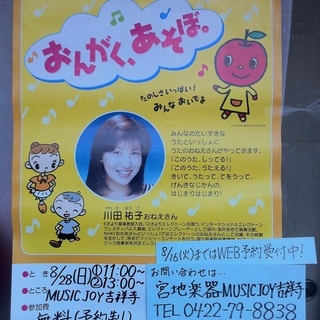 おんがく、あそぼ。
たのしさいっぱい!
みんな おいでよ
みんなのだいすきな
うたといっしょに
うたのおねえさんがやってきます。
「このうた、しってる!」
「このうた、うたえる!」
きいて、うたって、てをうって、
げんきなじかんの、
はじまりはじまり!
川田 祐子 おねえさん
8/16(火)まではWEB予約受付中!
●とき 8/28(日) ①11:00〜 ②13:00〜
●ところ MUSIC JOY 吉祥寺
●参加費 無料(予約制)
お問い合わせは…
宮地楽器 MUSIC JOY 吉祥寺
TEL 0422-79-8838